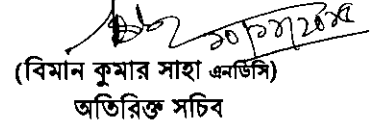 ২০/১২/২০২৫
(বিমান কুমার সাহা এনডিসি)
অতিরিক্ত সচিব